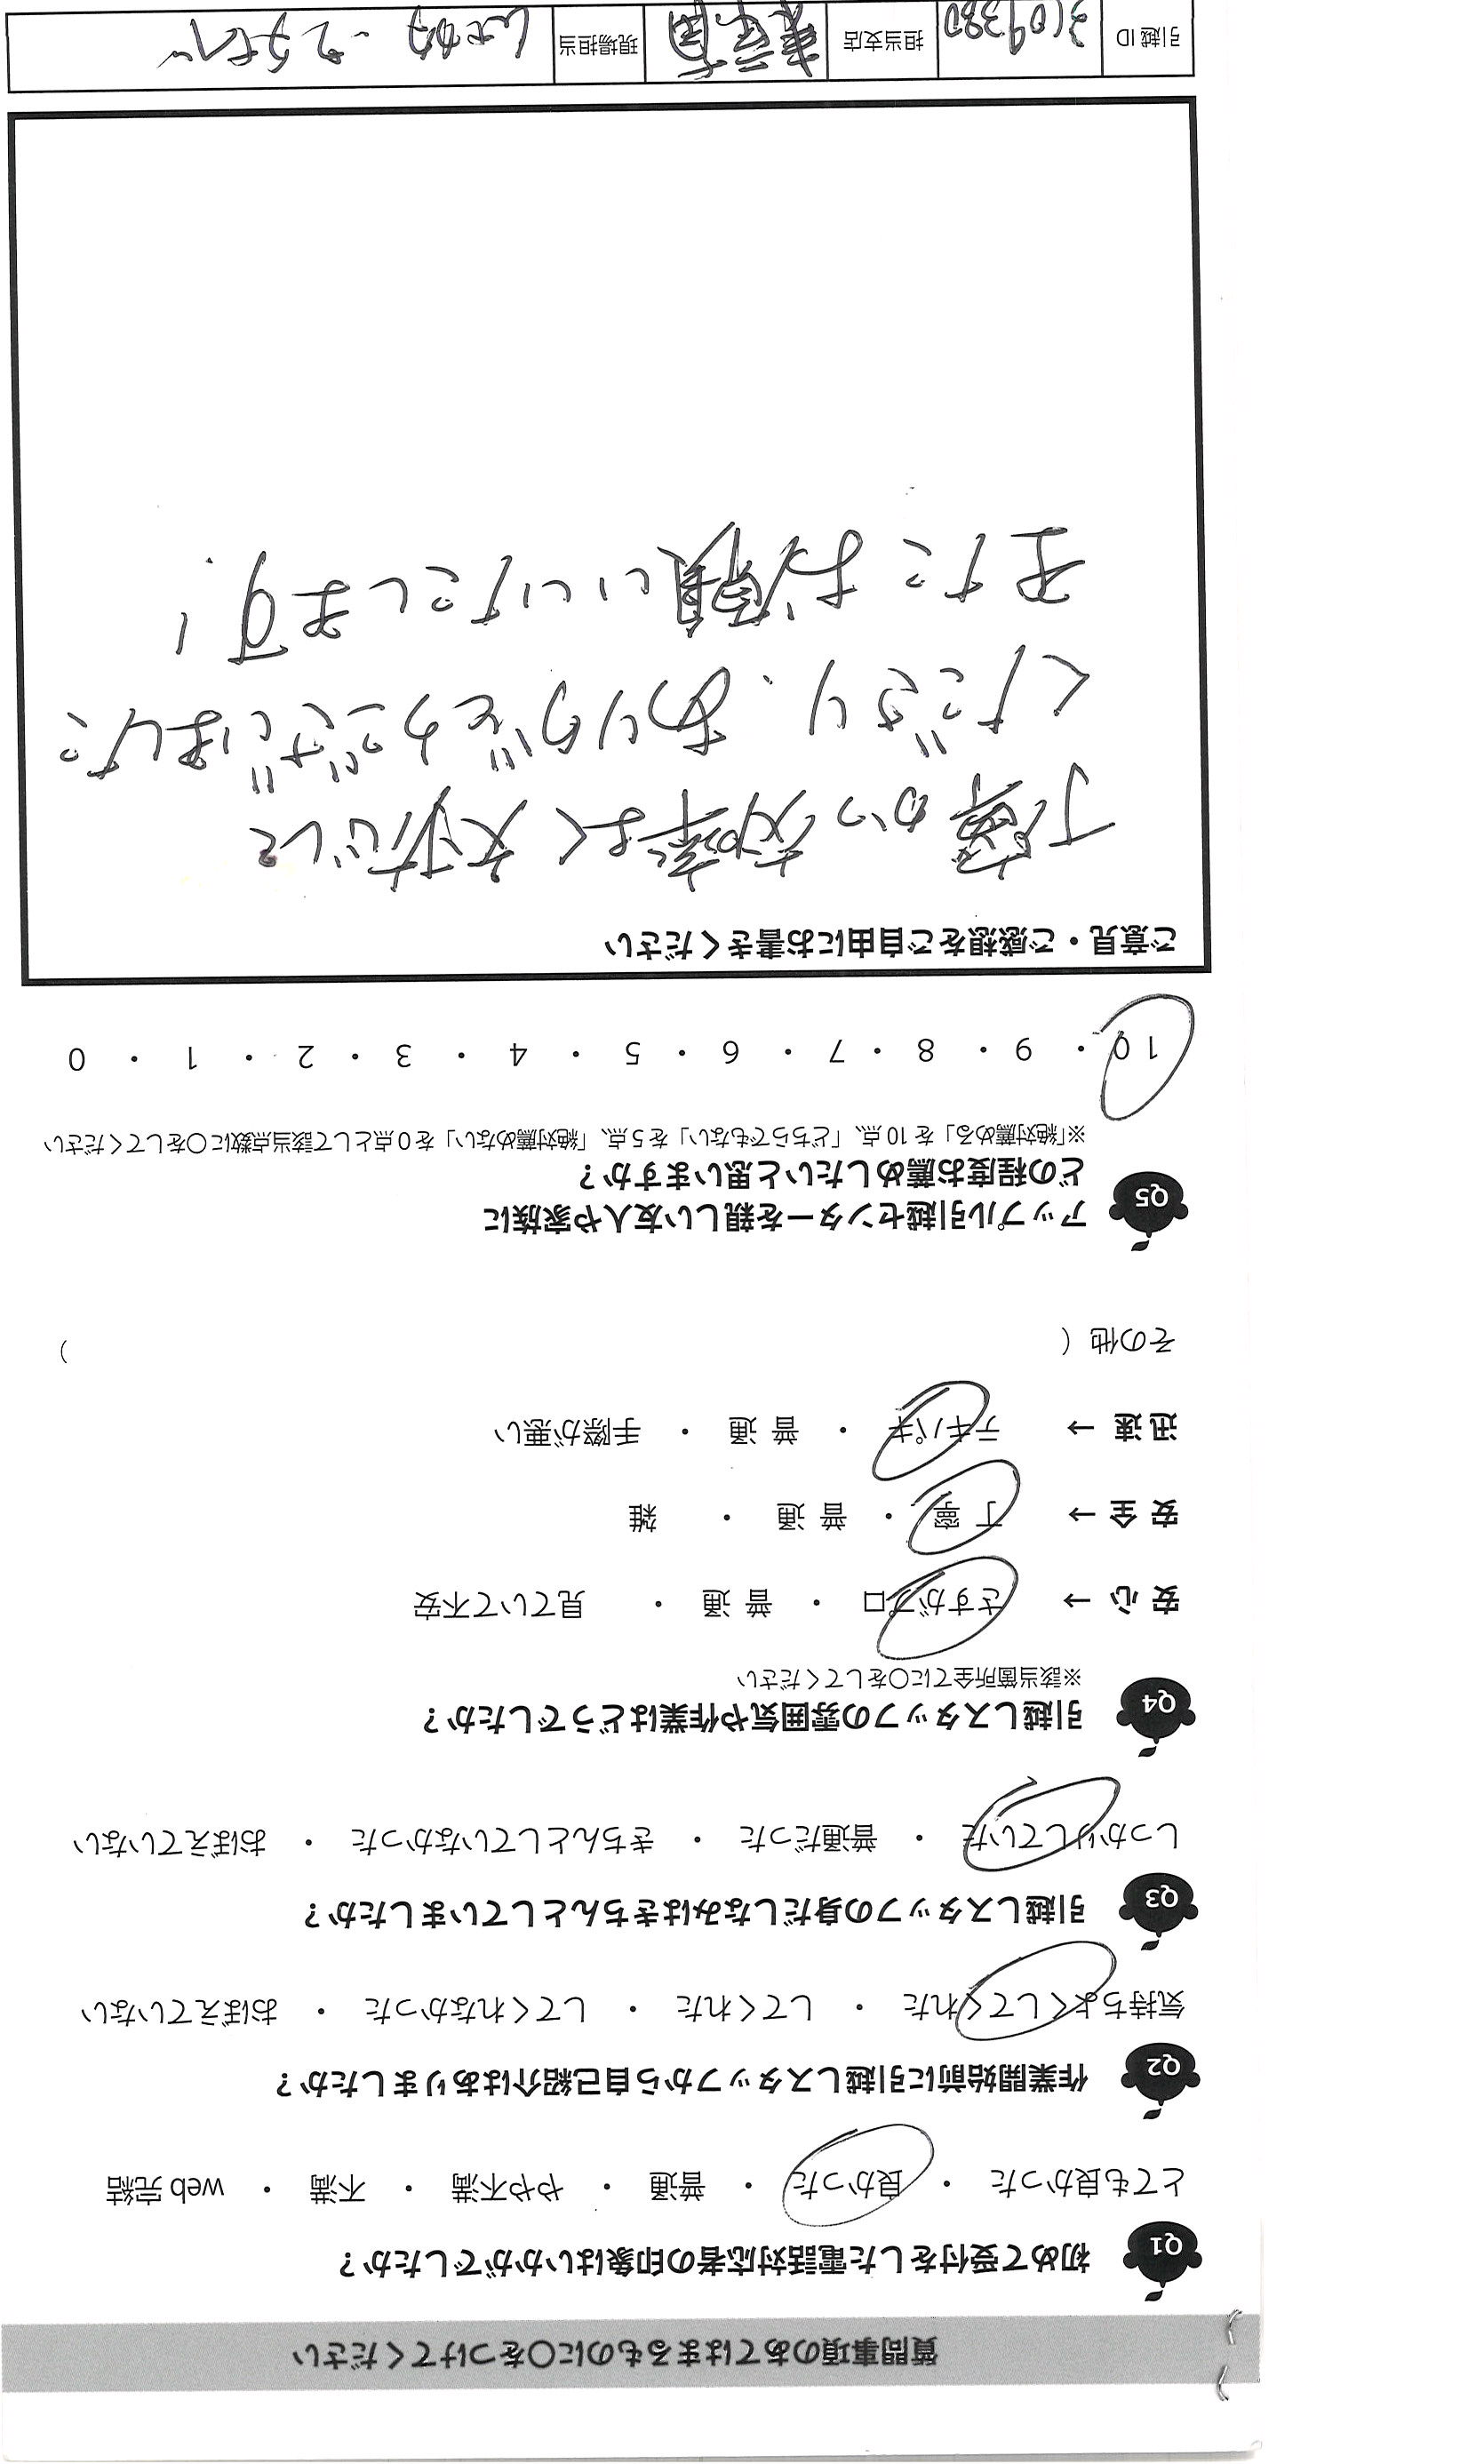 質問事項のあてはまるものに○をつけてください
Q1 初めて受付をした電話対応者の印象はいかがでしたか？
とても良かった ・ 良かった ・ 普通 ・ やや不満 ・ 不満 ・ web 完結
Q2 作業開始前に引越しスタッフから自己紹介はありましたか？
気持ちよくしてくれた ・ してくれた ・ してくれなかった ・ おぼえていない
Q3 引越しスタッフの身だしなみはきちんとしていましたか？
しっかりしていた ・ 普通だった ・ きちんとしていなかった ・ おぼえていない
Q4 引越しスタッフの雰囲気や作業はどうでしたか？
※該当箇所全てに○をしてください
安心 → さすがプロ ・ 普通 ・ 見ていて不安
安全 → 丁寧 ・ 普通 ・ 雑
迅速 → テキパキ ・ 普通 ・ 手際が悪い
その他（ ）
Q5 アップル引越センターを親しい友人や家族に
どの程度お薦めしたいと思いますか？
※「絶対薦める」を10点、「どちらでもない」を5点、「絶対薦めない」を0点として該当点数に○をしてください
10 ・ 9 ・ 8 ・ 7 ・ 6 ・ 5 ・ 4 ・ 3 ・ 2 ・ 1 ・ 0
ご意見・ご感想をご自由にお書きください
丁寧かつ効率よく対応して
くださり、ありがとうございました
またお願いいたします！
引越ID 3109380 担当支店 現場担当